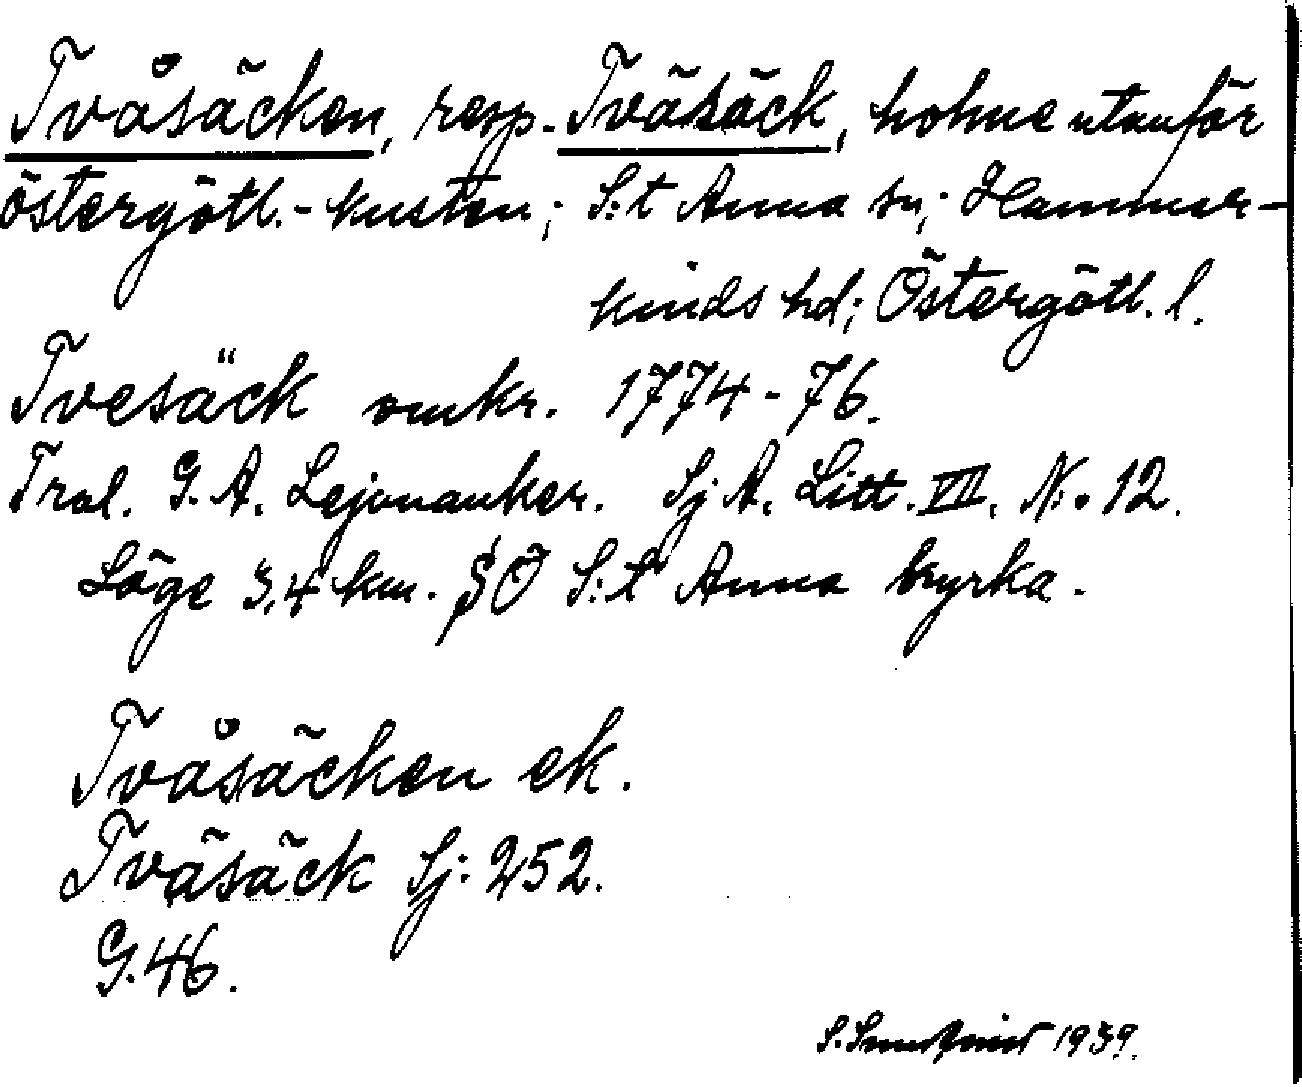 Tvåsäcken, resp. Tväsäck, holme utanför
östergötl.-kusten; S:t Anna sn; Hammar-
kinds hd; Östergötl. l.
Tvesäck omkr. 1774-76.
Tral. G. A. Lejonanker. Sj A. Litt. VII. No 12.
Läge 3,4 km. SO S:t Anna kyrka.
Tvåsäcken ek.
Tväsäck Sj: 252.
G. 46.
S. 1939.